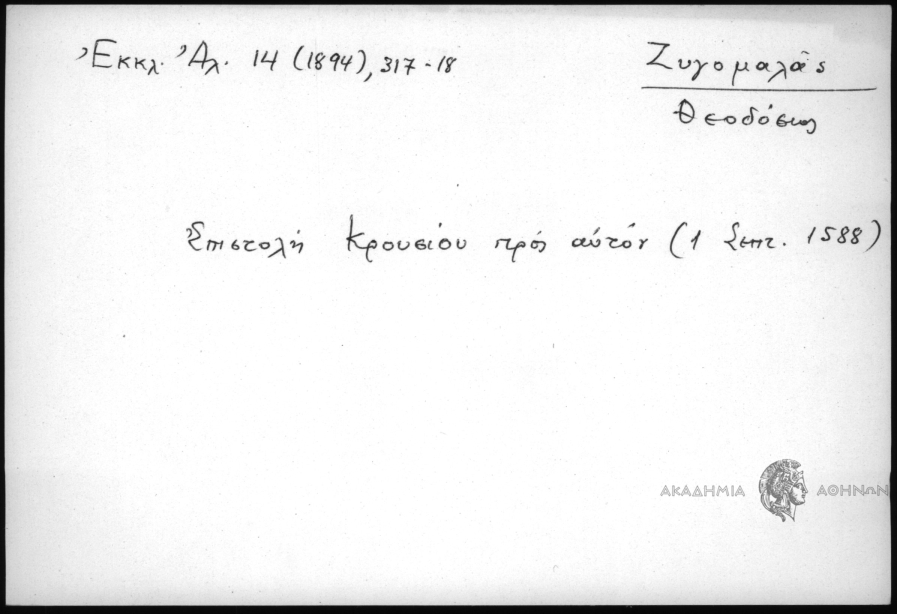 Ἐκκλ. Ἀλ. 14 (1894), 317-18
Ζυγομαλᾶς
Θεοδόσιος
Ἐπιστολή Κρουσίου πρός αὐτόν (1 Σεπτ. 1588)
ΑΚΑΔΗΜΙΑ ΑΘΗΝΩΝ